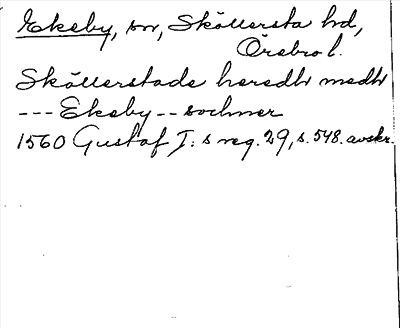 Ekeby, sn, Sköllersta hd,
Örebro l.
Sköllerstade heredhr medhr
--- Ekeby -- sochner
1560 Gustaf I:s reg. 29, s. 548. avskr.